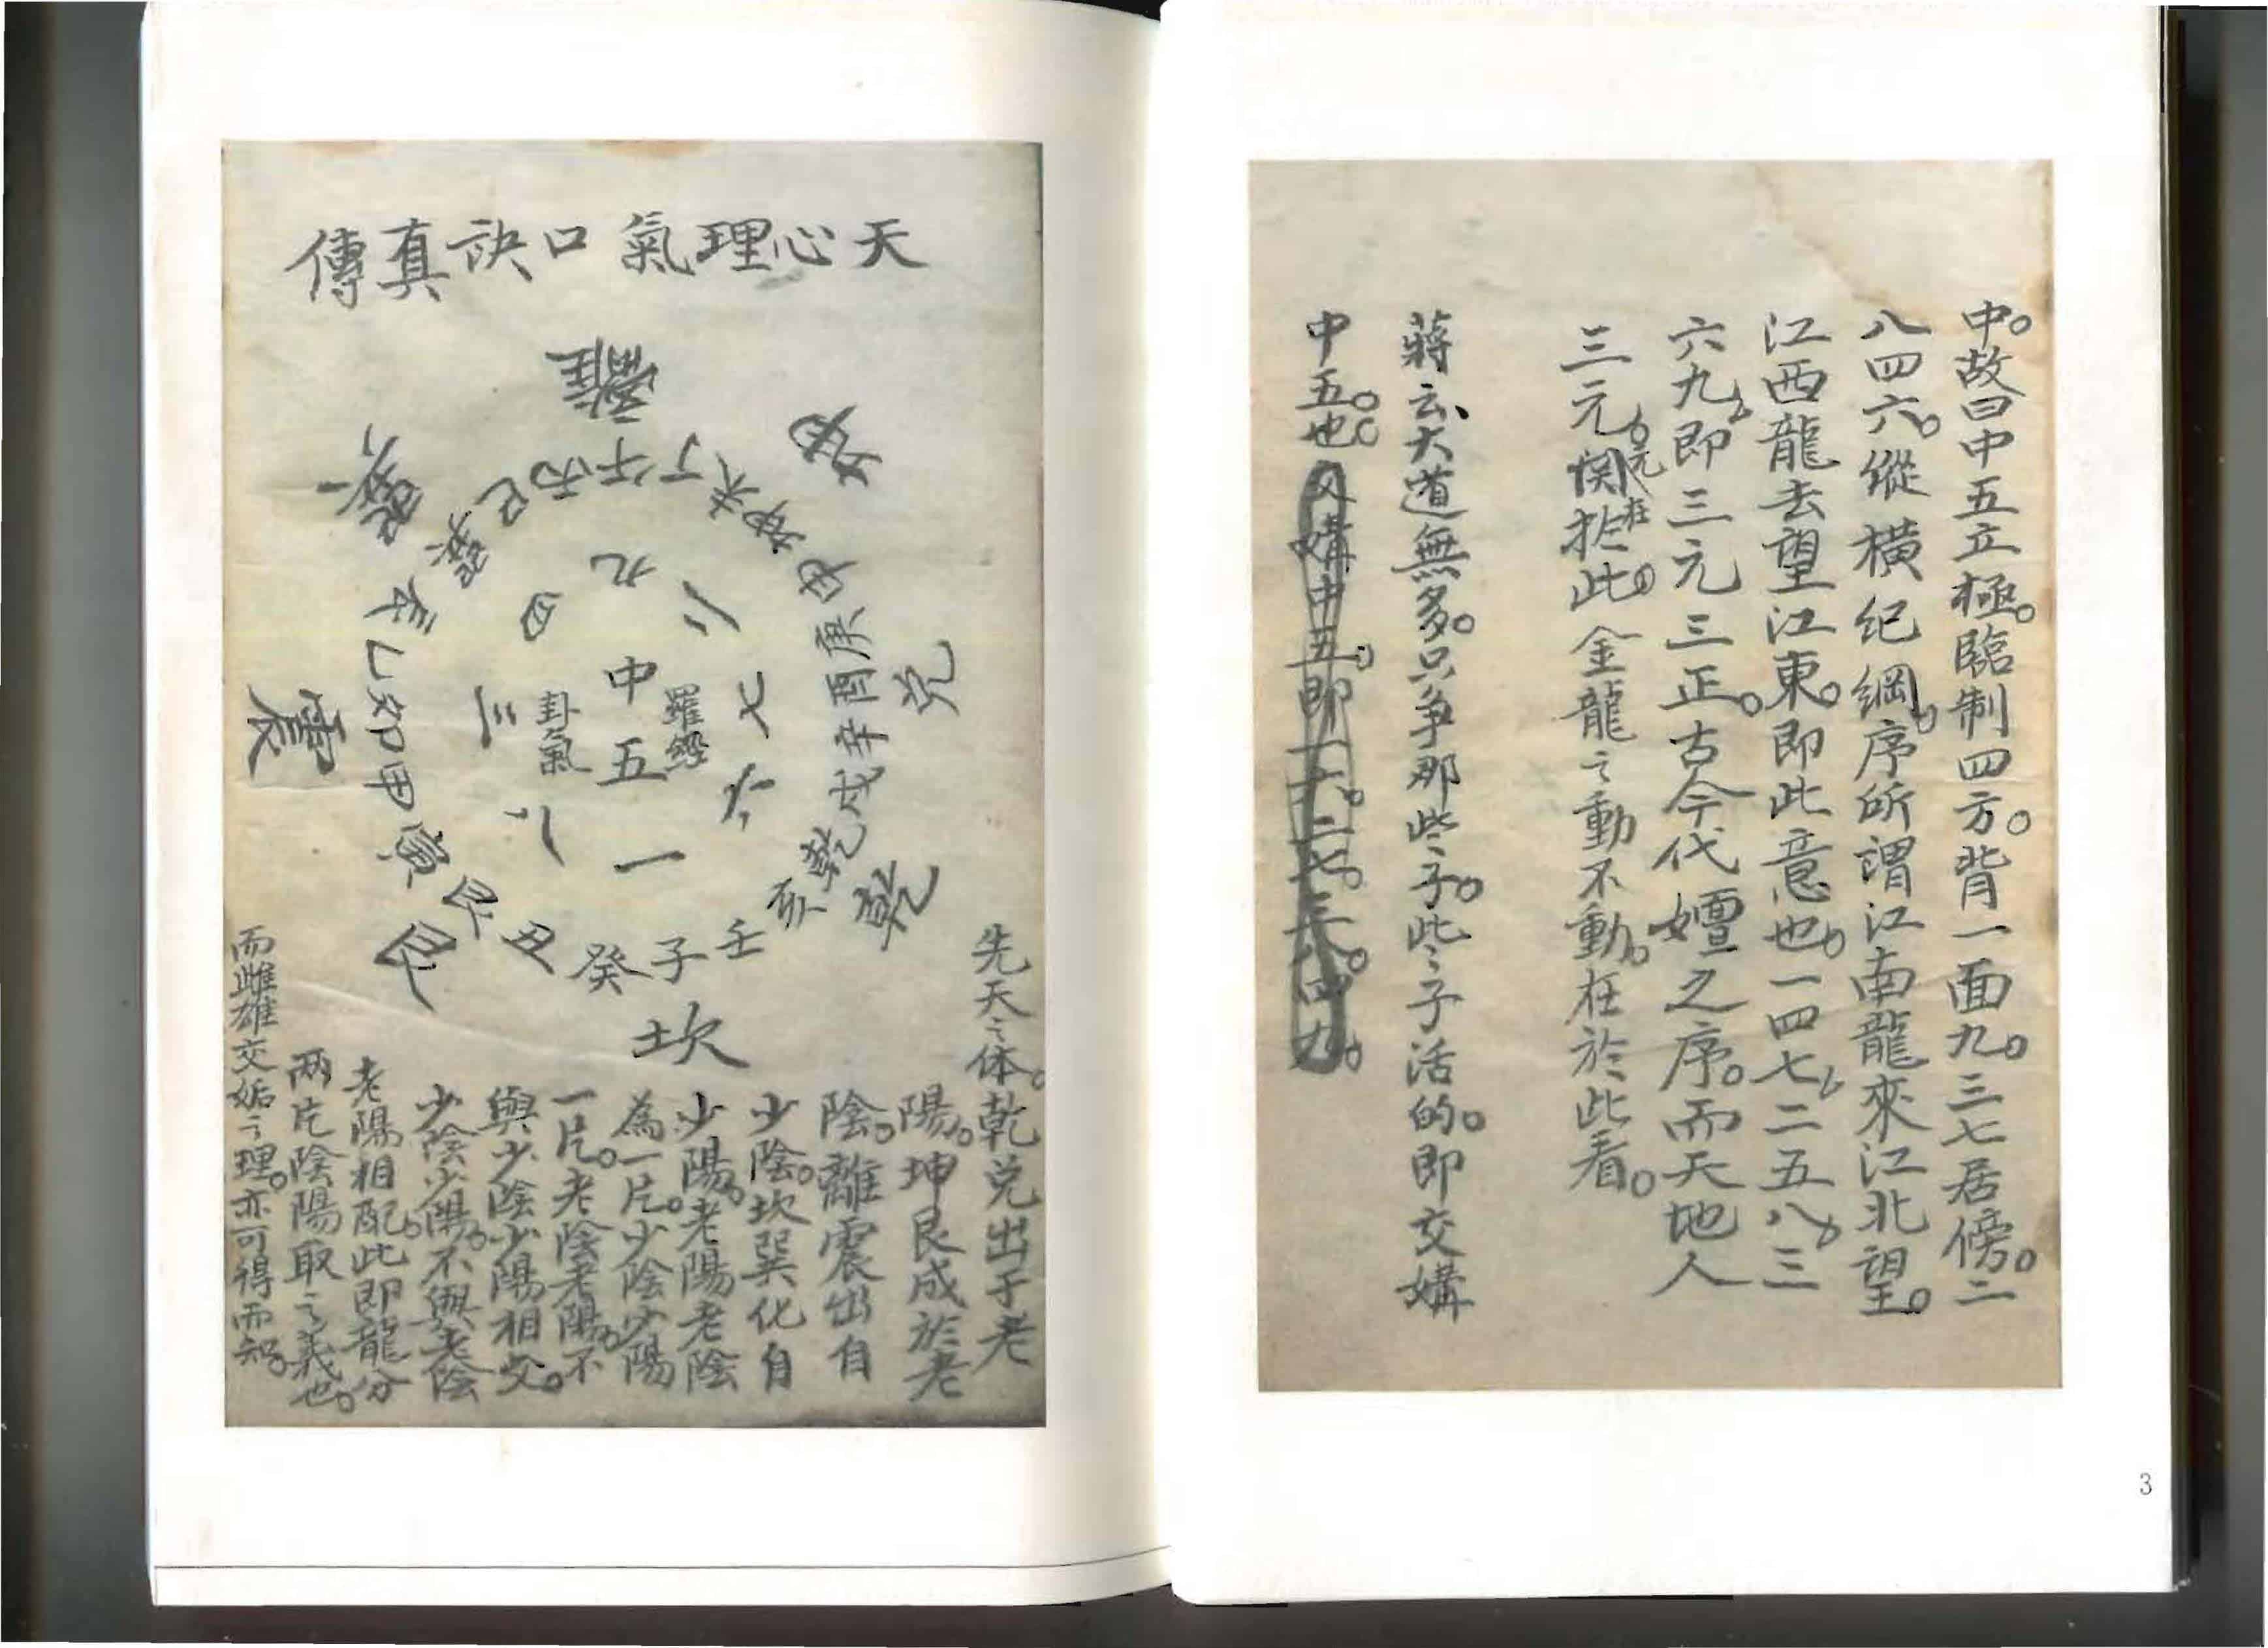 中。故曰中五立極。臨制四方。背一面九。三七居傍。二
八四六。縱橫紀綱。序所謂江南龍來江北望。
江西龍去望江東。即此意也。一四七、二五八、三
六九、即三元三正。古今代嬗之序。而天地人
三元、関扵此。金龍之動不動。在於此看。
元在
蔣云、大道無多。只争那些子。些子活的。即交媾
中五也。交媾中五。即一六。二七。三八。四九。
天心理氣口訣真傳
離
坤
兌
乾
坎
艮
震
巽
丙午丁未坤申庚酉辛戌乾亥壬子癸丑艮寅甲卯乙辰巽巳
九
二
七
六
一
八
三
四
中五
羅經
卦氣
先天之体。乾兌出于老
陽。坤艮成於老
陰。離震出自
少陰。坎巽化自
少陽。老陽老陰
為一片。少陰少陽
一片。老陰老陽。不
與少陰少陽相交。
少陰少陽。不與老陰
老陽相配。此即龍分
兩片陰陽取之義也。
而雌雄交姤之理。亦可得而知。
3